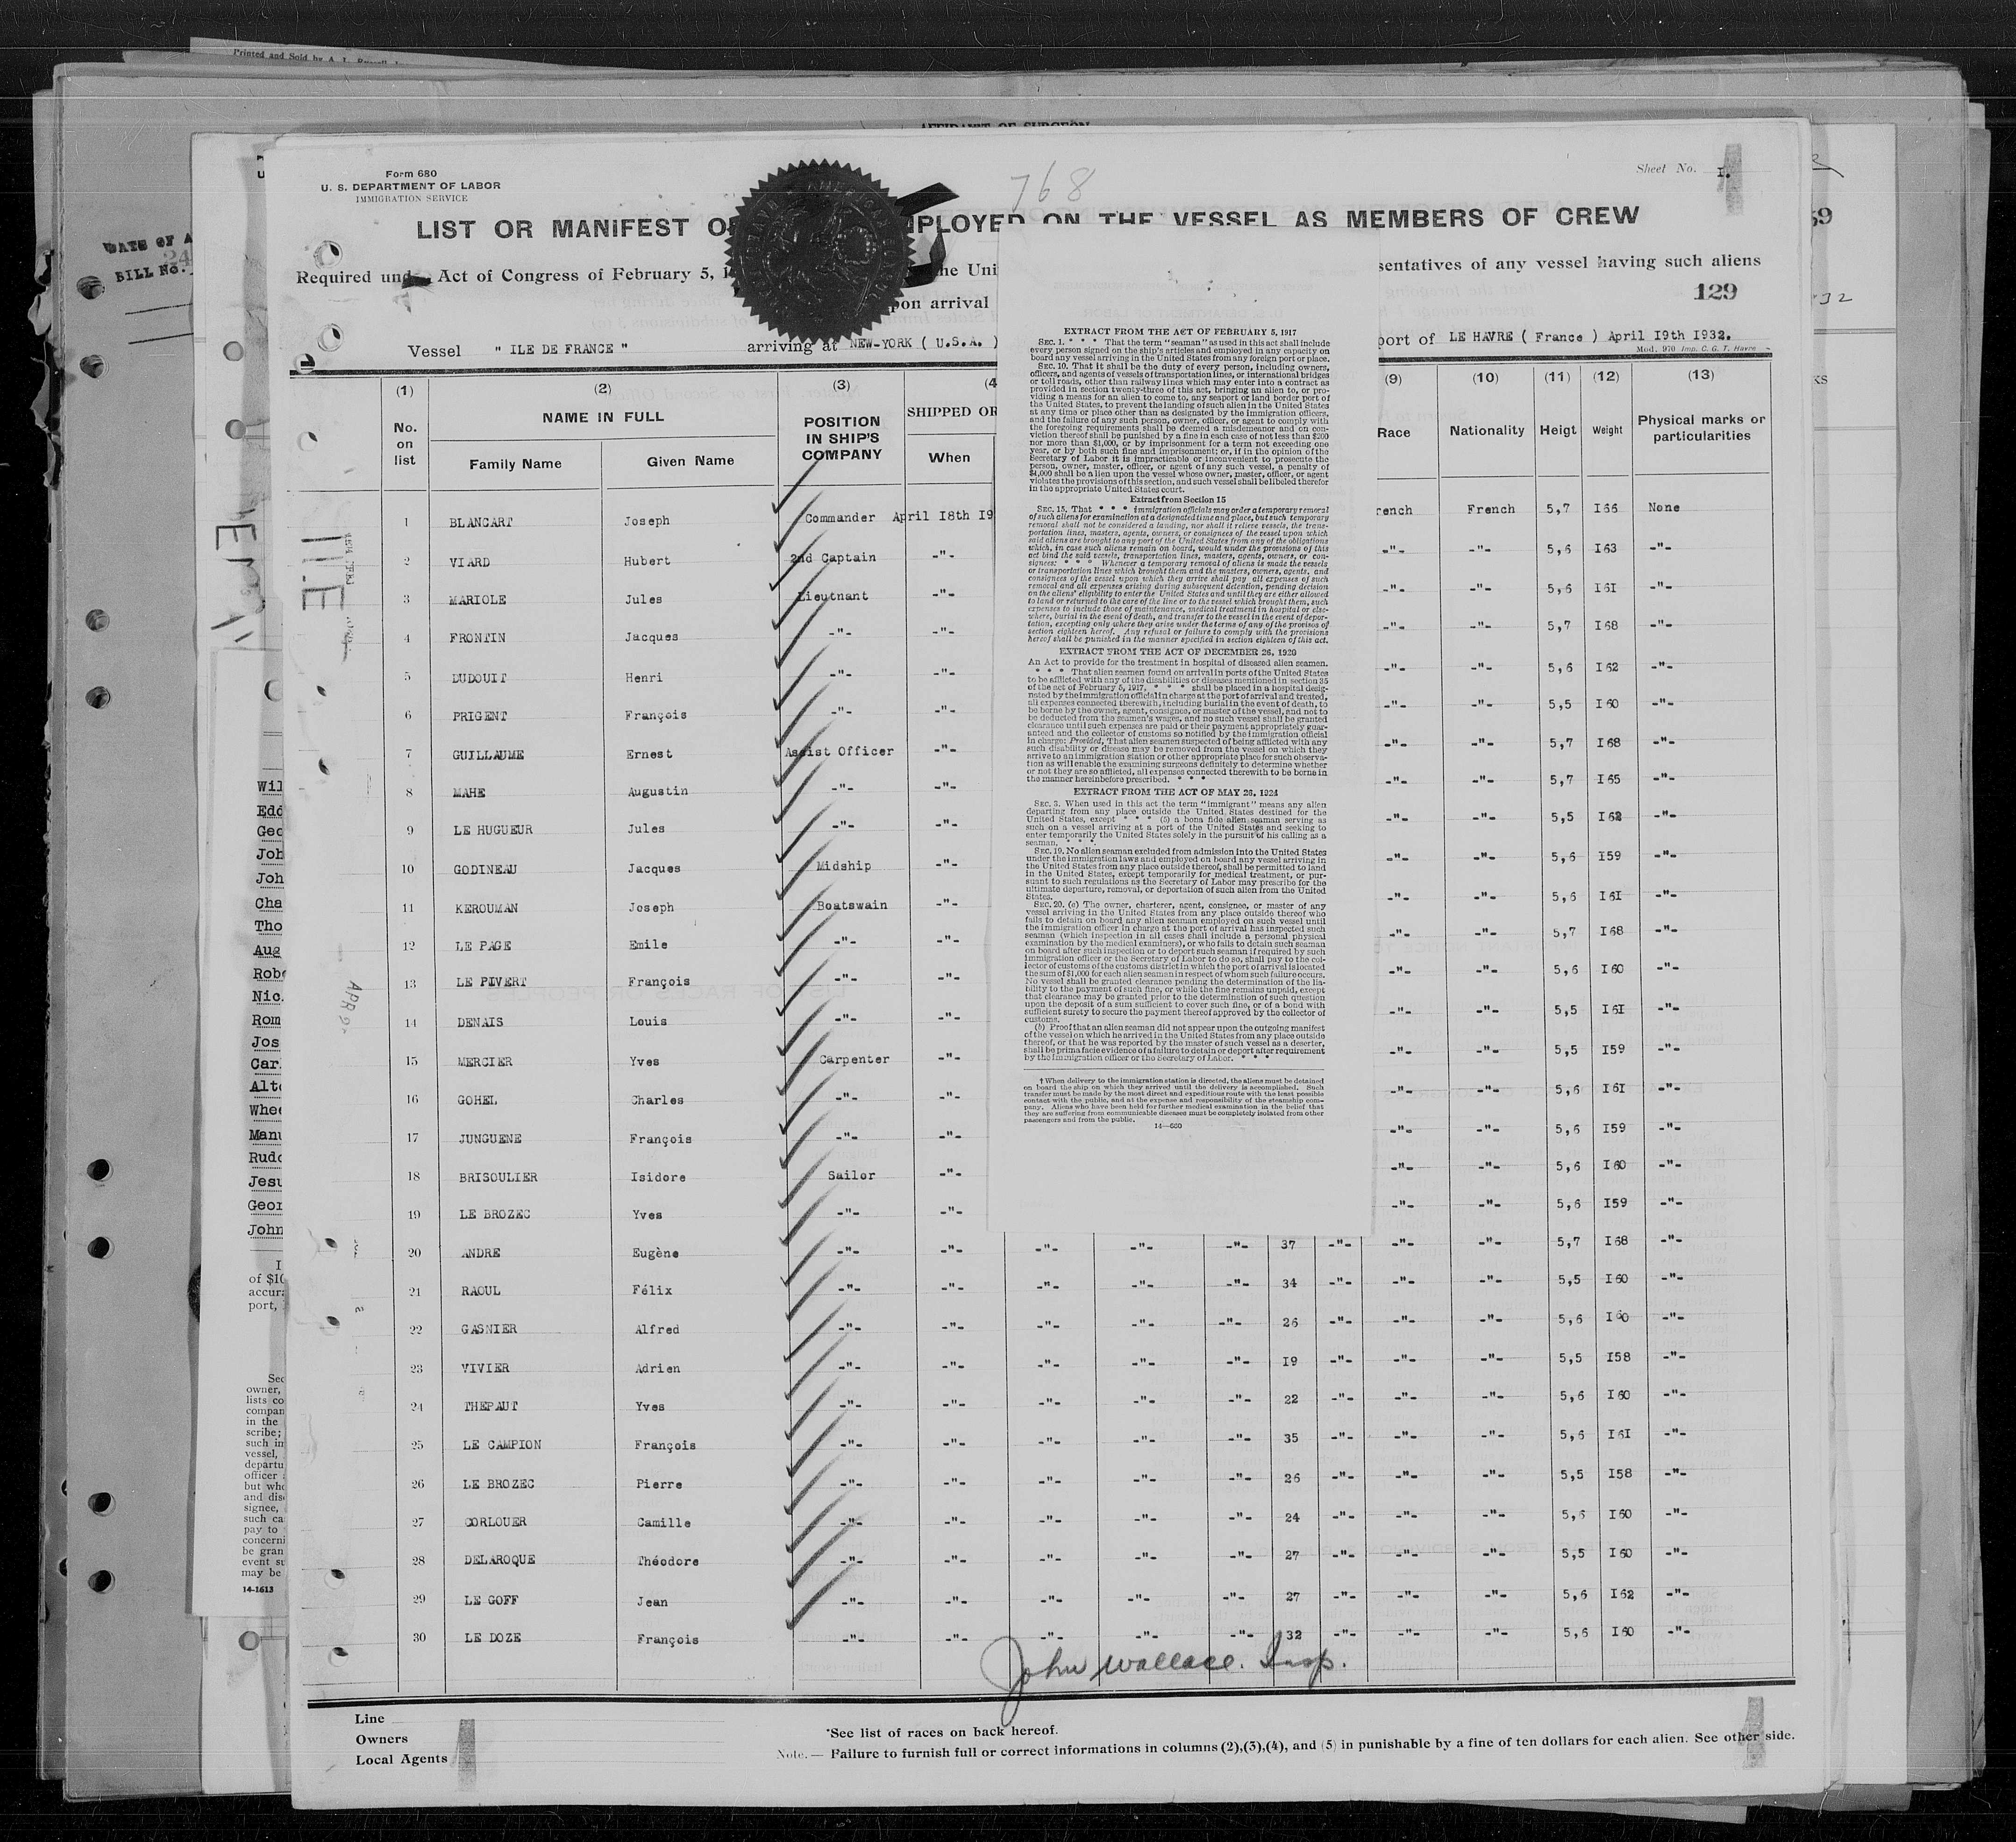 Printed and Sold by A. L.
AFFIDAVIT OF SURGEON
Form 680
U. S. DEPARTMENT OF LABOR
IMMIGRATION SERVICE
768
Sheet No. I.
LIST OR MANIFEST O MPLOYED ON THE VESSEL AS MEMBERS OF CREW
Required under Act of Congress of February 5, 1 the Uni sentatives of any vessel having such aliens
pon arrival
129
Vessel " ILE DE FRANCE " arriving at NEW-YORK ( U.S.A. ) port of LE HAVRE ( France ) April I9th I932.
Mod. 970 Imp. C. G. T. Havre
(1) (2) (3) (4 (9) (10) (11) (12) (13)
No. on list NAME IN FULL POSITION IN SHIP'S COMPANY SHIPPED OR Race Nationality Heigt Weight Physical marks or particularities
Family Name Given Name When
1 BLANCART Joseph Commander April I8th I9 rench French 5,7 I66 None
2 VIARD Hubert 2nd Captain -"- -"- -"- 5,6 I63 -"-
3 MARIOLE Jules Lieutnant -"- -"- -"- 5,6 I6I -"-
4 FRONTIN Jacques -"- -"- -"- -"- 5,7 I68 -"-
5 DUDOUIT Henri -"- -"- -"- -"- 5,6 I62 -"-
6 PRIGENT François -"- -"- -"- -"- 5,5 I60 -"-
7 GUILLAUME Ernest Assist Officer -"- -"- -"- 5,7 I68 -"-
8 MAHE Augustin -"- -"- -"- -"- 5,7 I65 -"-
9 LE HUGUEUR Jules -"- -"- -"- -"- 5,5 I62 -"-
10 GODINEAU Jacques Midship -"- -"- -"- 5,6 I59 -"-
11 KEROUMAN Joseph Boatswain -"- -"- -"- 5,6 I6I -"-
12 LE PAGE Emile -"- -"- -"- -"- 5,7 I68 -"-
13 LE PIVERT François -"- -"- -"- -"- 5,6 I60 -"-
14 DENAIS Louis -"- -"- -"- -"- 5,5 I6I -"-
15 MERCIER Yves Carpenter -"- -"- -"- 5,5 I59 -"-
16 GOHEL Charles -"- -"- -"- -"- 5,6 I6I -"-
17 JUNGUENE François -"- -"- -"- -"- 5,6 I59 -"-
18 BRISOULIER Isidore Sailor -"- -"- -"- 5,6 I60 -"-
19 LE BROZEC Yves -"- -"- -"- -"- 5,6 I59 -"-
20 ANDRE Eugène -"- -"- -"- -"- -"- 37 -"- -"- -"- 5,7 I68 -"-
21 RAOUL Félix -"- -"- -"- -"- -"- 34 -"- -"- -"- 5,5 I60 -"-
22 GASNIER Alfred -"- -"- -"- -"- -"- 26 -"- -"- -"- 5,6 I60 -"-
23 VIVIER Adrien -"- -"- -"- -"- -"- I9 -"- -"- -"- 5,5 I58 -"-
24 THEPAUT Yves -"- -"- -"- -"- -"- 22 -"- -"- -"- 5,6 I60 -"-
25 LE CAMPION François -"- -"- -"- -"- -"- 35 -"- -"- -"- 5,6 I6I -"-
26 LE BROZEC Pierre -"- -"- -"- -"- -"- 26 -"- -"- -"- 5,5 I58 -"-
27 CORLOUER Camille -"- -"- -"- -"- -"- 24 -"- -"- -"- 5,6 I60 -"-
28 DELAROQUE Théodore -"- -"- -"- -"- -"- 27 -"- -"- -"- 5,5 I60 -"-
29 LE GOFF Jean -"- -"- -"- -"- -"- 27 -"- -"- -"- 5,6 I62 -"-
30 LE DOZE François -"- -"- -"- -"- -"- 32 -"- -"- -"- 5,6 I60 -"-
John Wallace. Insp.
Line
Owners
Local Agents
*See list of races on back hereof.
Note. — Failure to furnish full or correct informations in columns (2),(3),(4), and (5) in punishable by a fine of ten dollars for each alien. See other side.
EXTRACT FROM THE ACT OF FEBRUARY 5, 1917
SEC. 1. * * * That the term "seaman" as used in this act shall include
every person signed on the ship's articles and employed in any capacity on
board any vessel arriving in the United States from any foreign port or place.
SEC. 10. That it shall be the duty of every person, including owners,
officers, and agents of vessels of transportation lines, or international bridges
or toll roads, other than railway lines which may enter into a contract as
provided in section twenty-three of this act, bringing an alien to, or pro-
viding a means for an alien to come to, any seaport or land border port of
the United States, to prevent the landing of such alien in the United States
at any time or place other than as designated by the immigration officers,
and the failure of any such person, owner, officer, or agent to comply with
the foregoing requirements shall be deemed a misdemeanor and on con-
viction thereof shall be punished by a fine in each case of not less than $200
nor more than $1,000, or by imprisonment for a term not exceeding one
year, or by both such fine and imprisonment; or, if in the opinion of the
Secretary of Labor it is impracticable or inconvenient to prosecute the
person, owner, master, officer, or agent of any such vessel, a penalty of
$1,000 shall be a lien upon the vessel whose owner, master, officer, or agent
violates the provisions of this section, and such vessel shall be libeled therefor
in the appropriate United States court.
Extract from Section 15
SEC. 15. That * * * immigration officials may order a temporary removal
of such aliens for examination at a designated time and place, but such temporary
removal shall not be considered a landing, nor shall it relieve vessels, the trans-
portation lines, masters, agents, owners, or consignees of the vessel upon which
said aliens are brought to any port of the United States from any of the obligations
which, in case such aliens remain on board, would under the provisions of this
act bind the said vessels, transportation lines, masters, agents, owners, or con-
signees: * * * Whenever a temporary removal of aliens is made the vessels
or transportation lines which brought them and the masters, owners, agents, and
consignees of the vessel upon which they arrive shall pay all expenses of such
removal and all expenses arising during subsequent detention, pending decision
on the aliens' eligibility to enter the United States and until they are either allowed
to land or returned to the care of the line or to the vessel which brought them, such
expenses to include those of maintenance, medical treatment in hospital or else-
where, burial in the event of death, and transfer to the vessel in the event of depor-
tation, excepting only where they arise under the terms of any of the provisos of
section eighteen hereof. Any refusal or failure to comply with the provisions
hereof shall be punished in the manner specified in section eighteen of this act.
EXTRACT FROM THE ACT OF DECEMBER 26, 1920
An Act to provide for the treatment in hospital of diseased alien seamen.
* * * That alien seamen found on arrival in ports of the United States
to be afflicted with any of the disabilities or diseases mentioned in section 35
of the act of February 5, 1917, * * * shall be placed in a hospital desig-
nated by the immigration official in charge at the port of arrival and treated,
all expenses connected therewith, including burial in the event of death, to
be borne by the owner, agent, consignee, or master of the vessel, and not to
be deducted from the seamen's wages, and no such vessel shall be granted
clearance until such expenses are paid or their payment appropriately guar-
anteed and the collector of customs so notified by the immigration official
in charge: Provided, That alien seamen suspected of being afflicted with any
such disability or disease may be removed from the vessel on which they
arrive to an immigration station or other appropriate place for such observa-
tion as will enable the examining surgeons definitely to determine whether
or not they are so afflicted, all expenses connected therewith to be borne in
the manner hereinbefore prescribed. * * *
EXTRACT FROM THE ACT OF MAY 26, 1924
SEC. 3. When used in this act the term "immigrant" means any alien
departing from any place outside the United States destined for the
United States, except * * * (5) a bona fide alien seaman serving as
such on a vessel arriving at a port of the United States and seeking to
enter temporarily the United States solely in the pursuit of his calling as a
seaman. * * *
SEC. 19. No alien seaman excluded from admission into the United States
under the immigration laws and employed on board any vessel arriving in
the United States from any place outside thereof, shall be permitted to land
in the United States, except temporarily for medical treatment, or pur-
suant to such regulations as the Secretary of Labor may prescribe for the
ultimate departure, removal, or deportation of such alien from the United
States.
SEC. 20. (a) The owner, charterer, agent, consignee, or master of any
vessel arriving in the United States from any place outside thereof who
fails to detain on board any alien seaman employed on such vessel until
the immigration officer in charge at the port of arrival has inspected such
seaman (which inspection in all cases shall include a personal physical
examination by the medical examiners), or who fails to detain such seaman
on board after such inspection or to deport such seaman if required by such
immigration officer or the Secretary of Labor to do so, shall pay to the col-
lector of customs of the customs district in which the port of arrival is located
the sum of $1,000 for each alien seaman in respect of whom such failure occurs.
No vessel shall be granted clearance pending the determination of the lia-
bility to the payment of such fine, or while the fine remains unpaid, except
that clearance may be granted prior to the determination of such question
upon the deposit of a sum sufficient to cover such fine, or of a bond with
sufficient surety to secure the payment thereof approved by the collector of
customs.
(b) Proof that an alien seaman did not appear upon the outgoing manifest
of the vessel on which he arrived in the United States from any place outside
thereof, or that he was reported by the master of such vessel as a deserter,
shall be prima facie evidence of a failure to detain or deport after requirement
by the immigration officer or the Secretary of Labor. * * *
† When delivery to the immigration station is directed, the aliens must be detained
on board the ship on which they arrived until the delivery is accomplished. Such
transfer must be made by the most direct and expeditious route with the least possible
contact with the public, and at the expense and responsibility of the steamship com-
pany. Aliens who have been held for further medical examination in the belief that
they are suffering from communicable diseases must be completely isolated from other
passengers and from the public.
14—680
DATE OF A
BILL No.
Wil
Edd
Geo
Joh
Joh
Cha
Tho
Aug
Robe
Nic
Rom
Jos
Car
Alt
Whee
Manu
Rudo
Jesu
Geor
John
of $10
accur
port,
Sec
owner,
lists co
compan
in the
scribe;
such in
vessel,
departu
officer
but who
and dis
signee,
such ca
pay to
concerni
be gran
event su
may be
14-1613